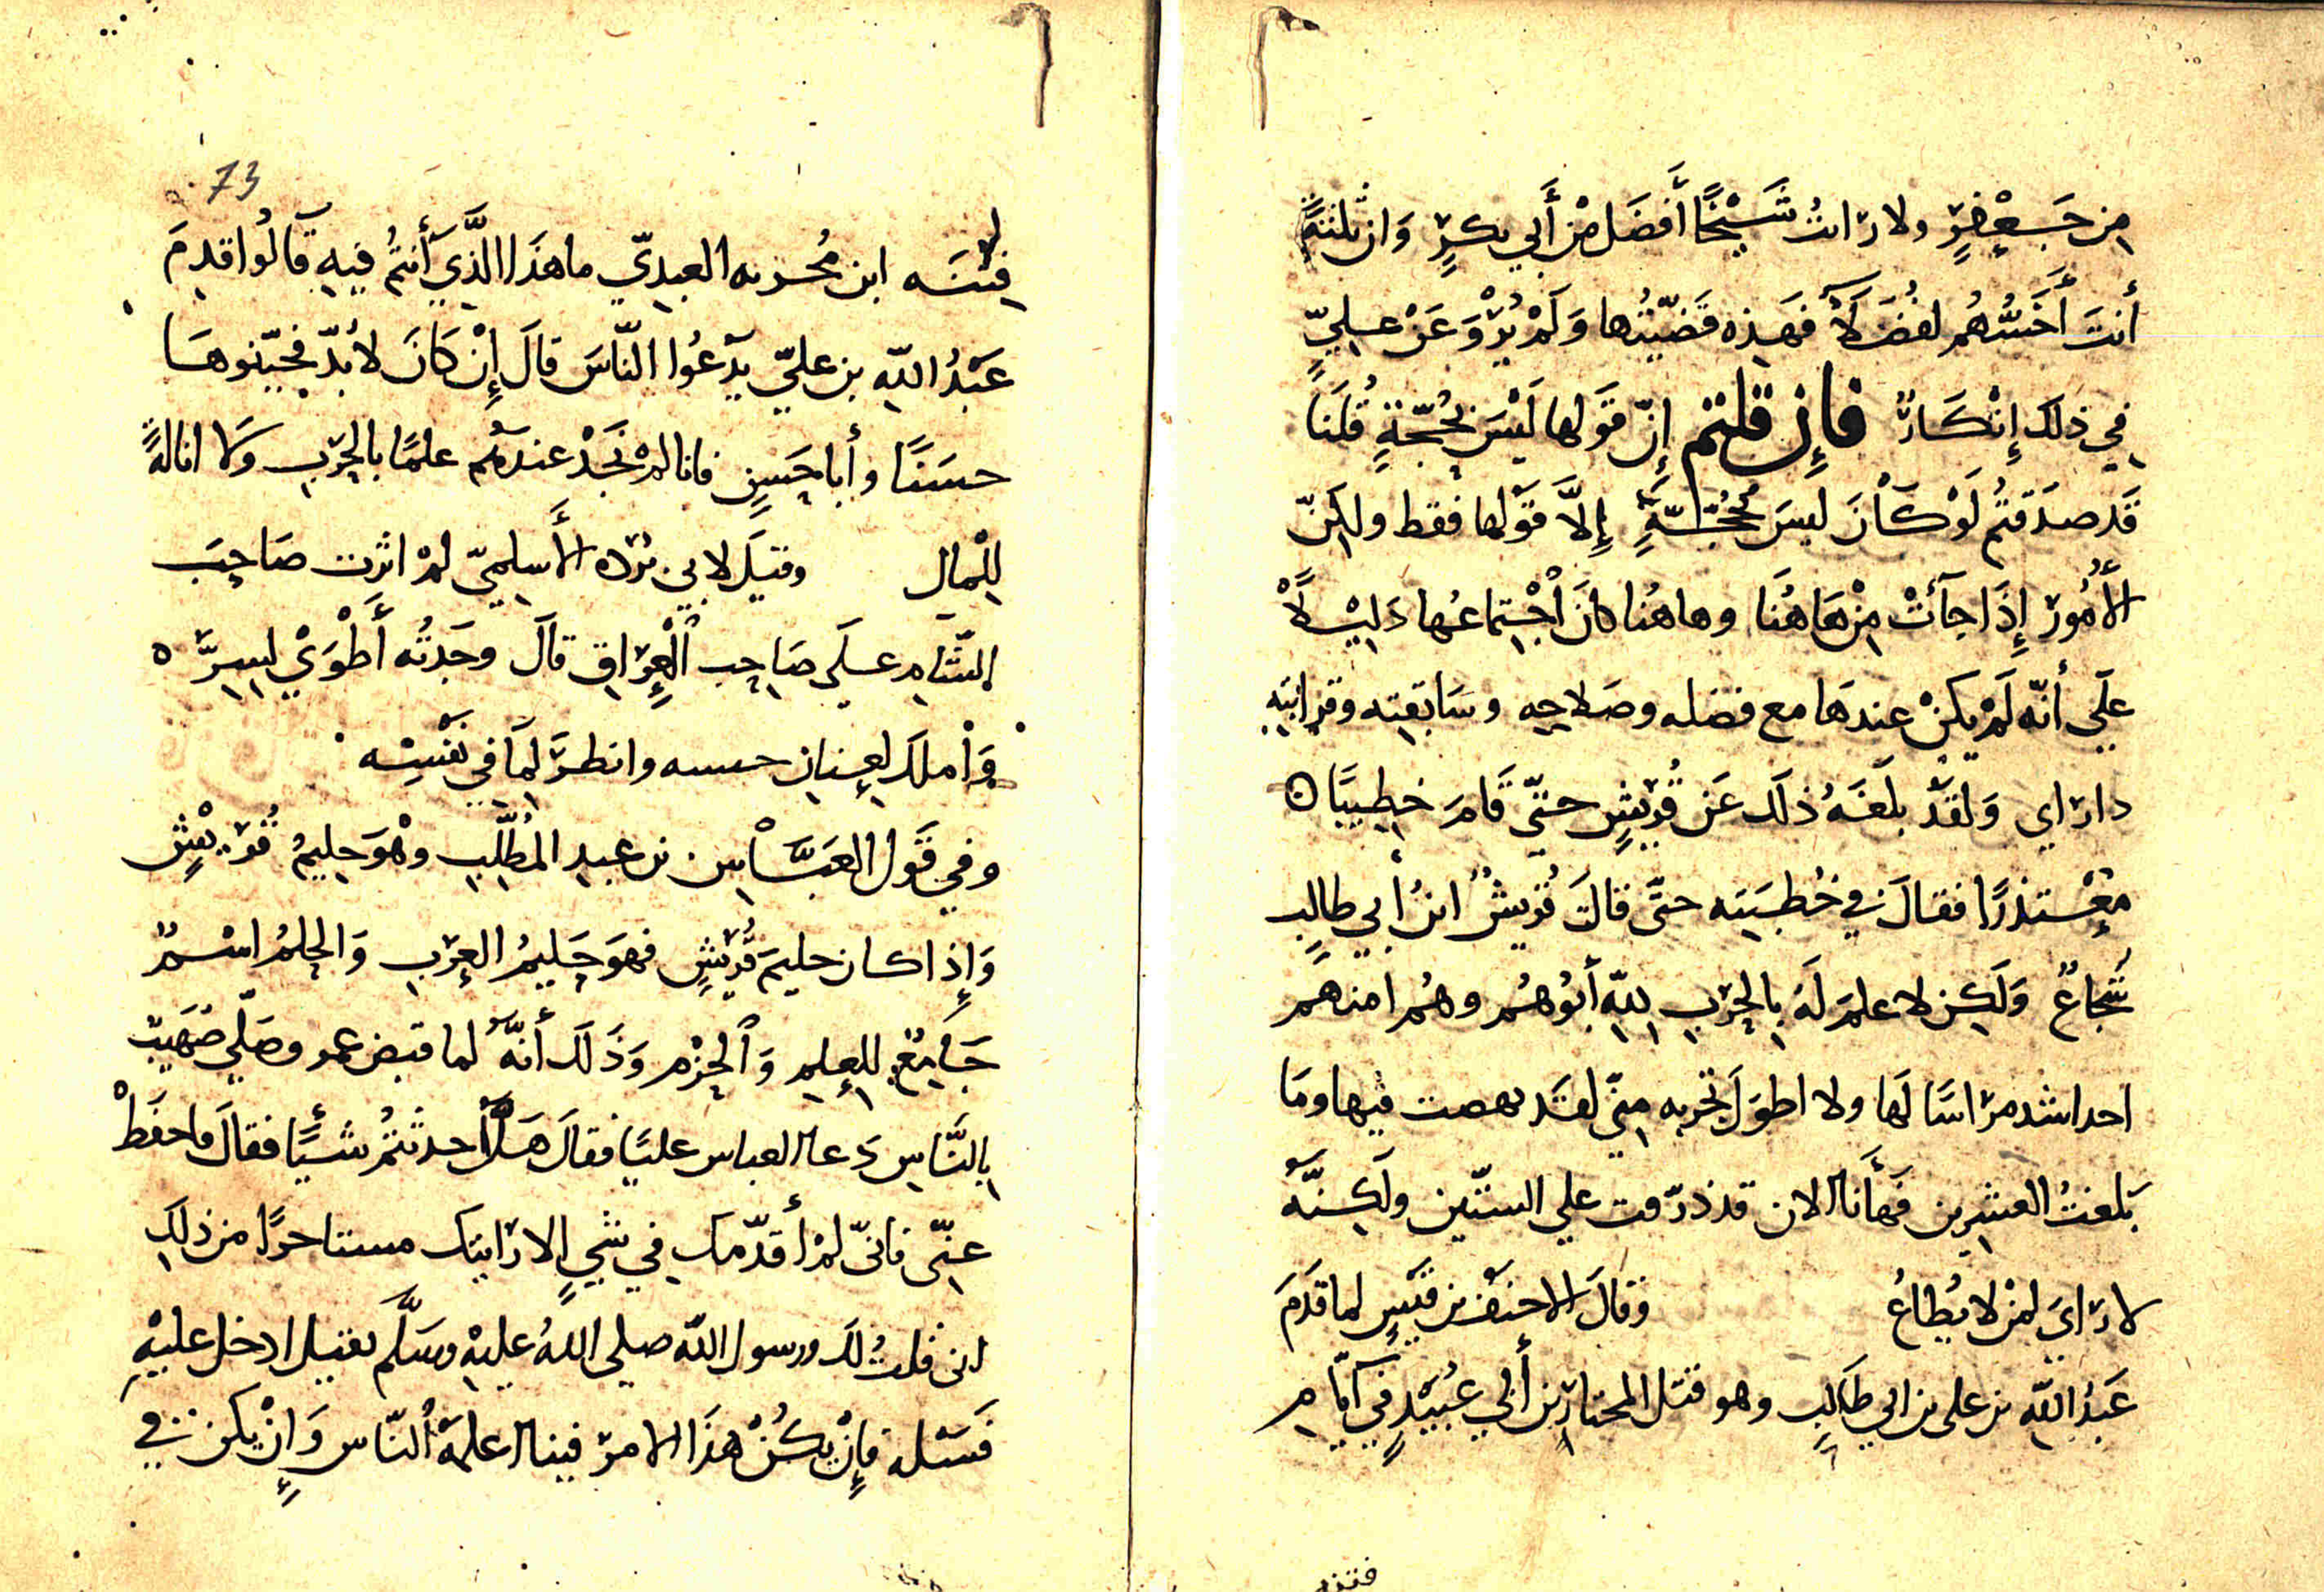 من جَعْفرٍ ولا رات شَيْخًا أَفضَل من أَبي بكرٍ وَان ثلثةً
أَنتَ أَخَسُّهُم لفُضَلاَ فهذه قضيّتُها وَلَمْ يُرْوَ عَنْ عليٍّ
في ذلك إِنْكَارٌ فإن قلتم إنّ قَولها لَيْسَ بحُجّةٍ قُلنَا
قَد صدَقتُم لَوْ كَانَ ليسَ حُجّةٌ إِلَّا قوْلها فقط ولكنّ
الأُمُورَ إِذَا جآئتْ مِنْ هَاهُنَا وهاهُنا كانَ اْجْتِماعُها دَلِيْلاً
علَي أنّه لَمْ يكنْ عندهَا مع فضله وصَلاحِه وسَابقته وقرابتهِ
دا راي وَلقَدْ بلَغَهُ ذلكَ عَن قُريْشٍ حتّي قَامَ خطِيبًا ه
مُعْتذرًا فقالَ في خُطبَتِه حتّى قالَتْ قُريشٌ ابنُ أَبي طالِبٍ
شجاعٌ وَلكِن لا علمَ لَهُ بالحَرْبِ للّهِ أَبُوهُم وهُم امنهم
احد اشد مراسًا لَها ولا اطوَل تجربه مِنّي لقَد نهصت فيها وَمَا
بَلغتُ العشرِين فهَأَنا الان قد ذرّفت علي الستّين ولَكِنَّهُ
لا رَايَ لمَنْ لا يُطاعُ وقالَ الاحنف بن قَيسٍ لما قَدمَ
عَبدُ اللّهِ بن على بن ابي طَالبٍ وهو قتل المختار بن أَبي عُبيْدٍ في أيّامِ
73
فتْنَه ابن مُخربه العبديّ ما هذَا الَّذِي أَنتُمْ فيهِ قَالُوا قدِمَ
عَبْدُ اللّهِ بن عليّ يدْعُوا النّاسَ قالَ إِنْ كَانَ لا بُدّ فجيّبوهَا
حسَنًا وأبا حَسَنٍ فانا لمْ نَجدْ عندهُم علمًا بالحَرْبِ وَلا انالةً
لِلْمالِ وقيلَ لابى برزه الأسلميّ لمْ اثرت صَاحِبَ
الشّامِ علَى صَاحِب الْعِراقِ قالَ وجَدتُه أَطْوَيْ لسِرِّه
وَاْملكَ لعِنانِ حسسه وانظرَ لِمَا في نَفْسِه
وفي قَول العَبَّاس بن عبدِ المُطّلِبِ وهْوَ حليمُ قُرَيْشٍ
وَإِذا كان حليمَ قُرَيْشٍ فهوَ حَليمُ العربِ وَالحِلمُ اسْمٌ
جَامِعٌ للعِلمِ وَالحزْم وَذَلكَ أَنَّه لما قبض عمر وصَلّي صُهَيب
بِالنَّاسِ دَعا العباس عليًا فقالَ هَلْ أحدثتُمْ شَيئًا فقالَ ما حفَظْ
عنّي فانىّ لمْ أُقدّمك في شيٍ إلا رَايتك مستاخرًا من ذلكَ
انى قلتُ لك ورسول اللّه صلي اللهُ عليهْ وسَلَّم يقتل ادخل عليْهِ
فَسَئله فإِنْ يكُنْ هذَا الامرُ فينا اعلمَهُ النّاسَ وَإِنْ يكن في
فتنه